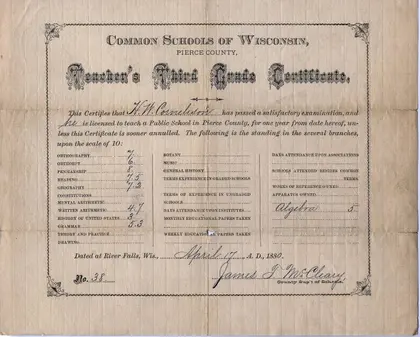 COMMON SCHOOLS OF WISCONSIN,
PIERCE COUNTY.
Teacher's Third Grade Certificate.
This Certifies that W. W. Cornelison has passed a satisfactory examination, and
he is licensed to teach a Public School in Pierce County, for one year from date hereof, un-
less this Certificate is sooner annulled. The following is the standing in the several branches,
upon the scale of 10:
ORTHOGRAPHY 7
ORTHOEPY 6
PENMANSHIP
READING 7.5
GEOGRAPHY 7.2
CONSTITUTIONS
MENTAL ARITHMETIC
WRITTEN ARITHMETIC 4.7
HISTORY OF UNITED STATES 3
GRAMMAR 5.3
THEORY AND PRACTICE
DRAWING
BOTANY
MUSIC
GENERAL HISTORY
TERMS EXPERIENCE IN GRADED SCHOOLS
TERMS OF EXPERIENCE IN UNGRADED
SCHOOLS
DAYS ATTENDANCE UPON INSTITUTES
MONTHLY EDUCATIONAL PAPERS TAKEN
WEEKLY EDUCATIONAL PAPERS TAKEN
DAYS ATTENDANCE UPON ASSOCIATIONS
SCHOOLS ATTENDED
TERMS
WORKS OF REFERENCE OWNED
APPARATUS OWNED
Algebra 5
Dated at River Falls, Wis., April 17 A. D., 1880.
No. 38
James T. McCleary
County Sup't of Schools.